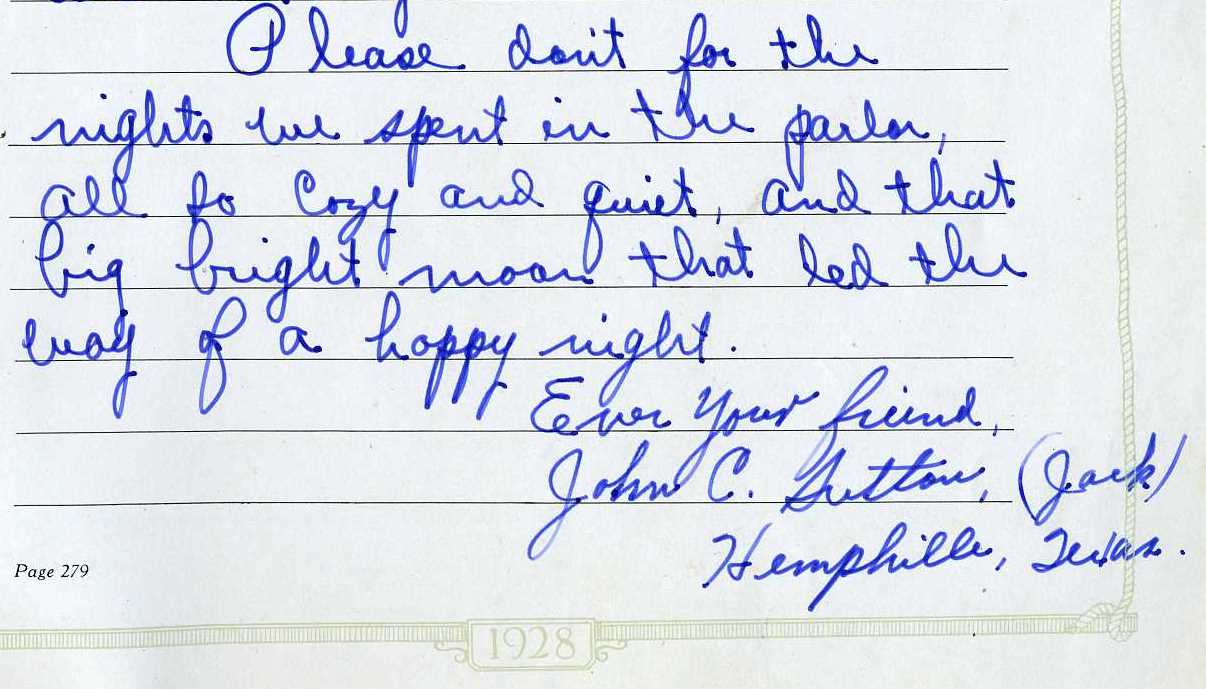 Please don't for the
nights we spent in the parlor,
all so cozy and quiet, and that
big bright moon that led the
way of a happy night.
Ever your friend,
John C. Sutton, (Jack)
Hemphille, Texas.
Page 279
1928